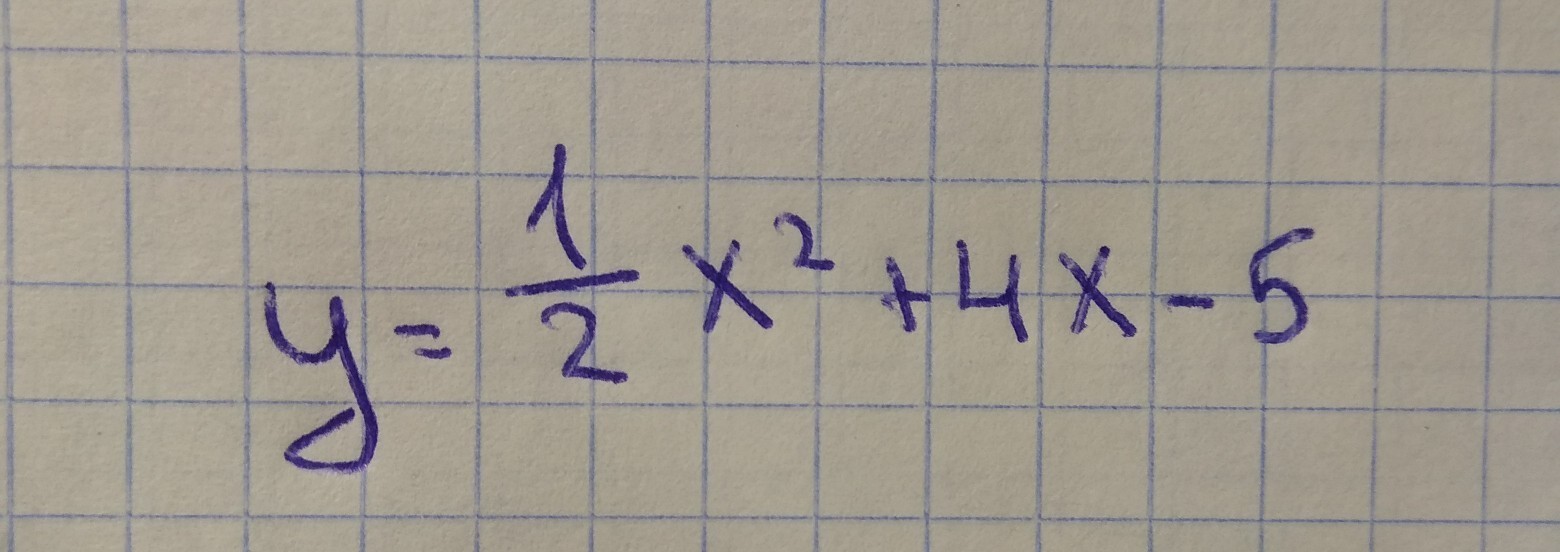 y = 1/2 x² + 4x - 5